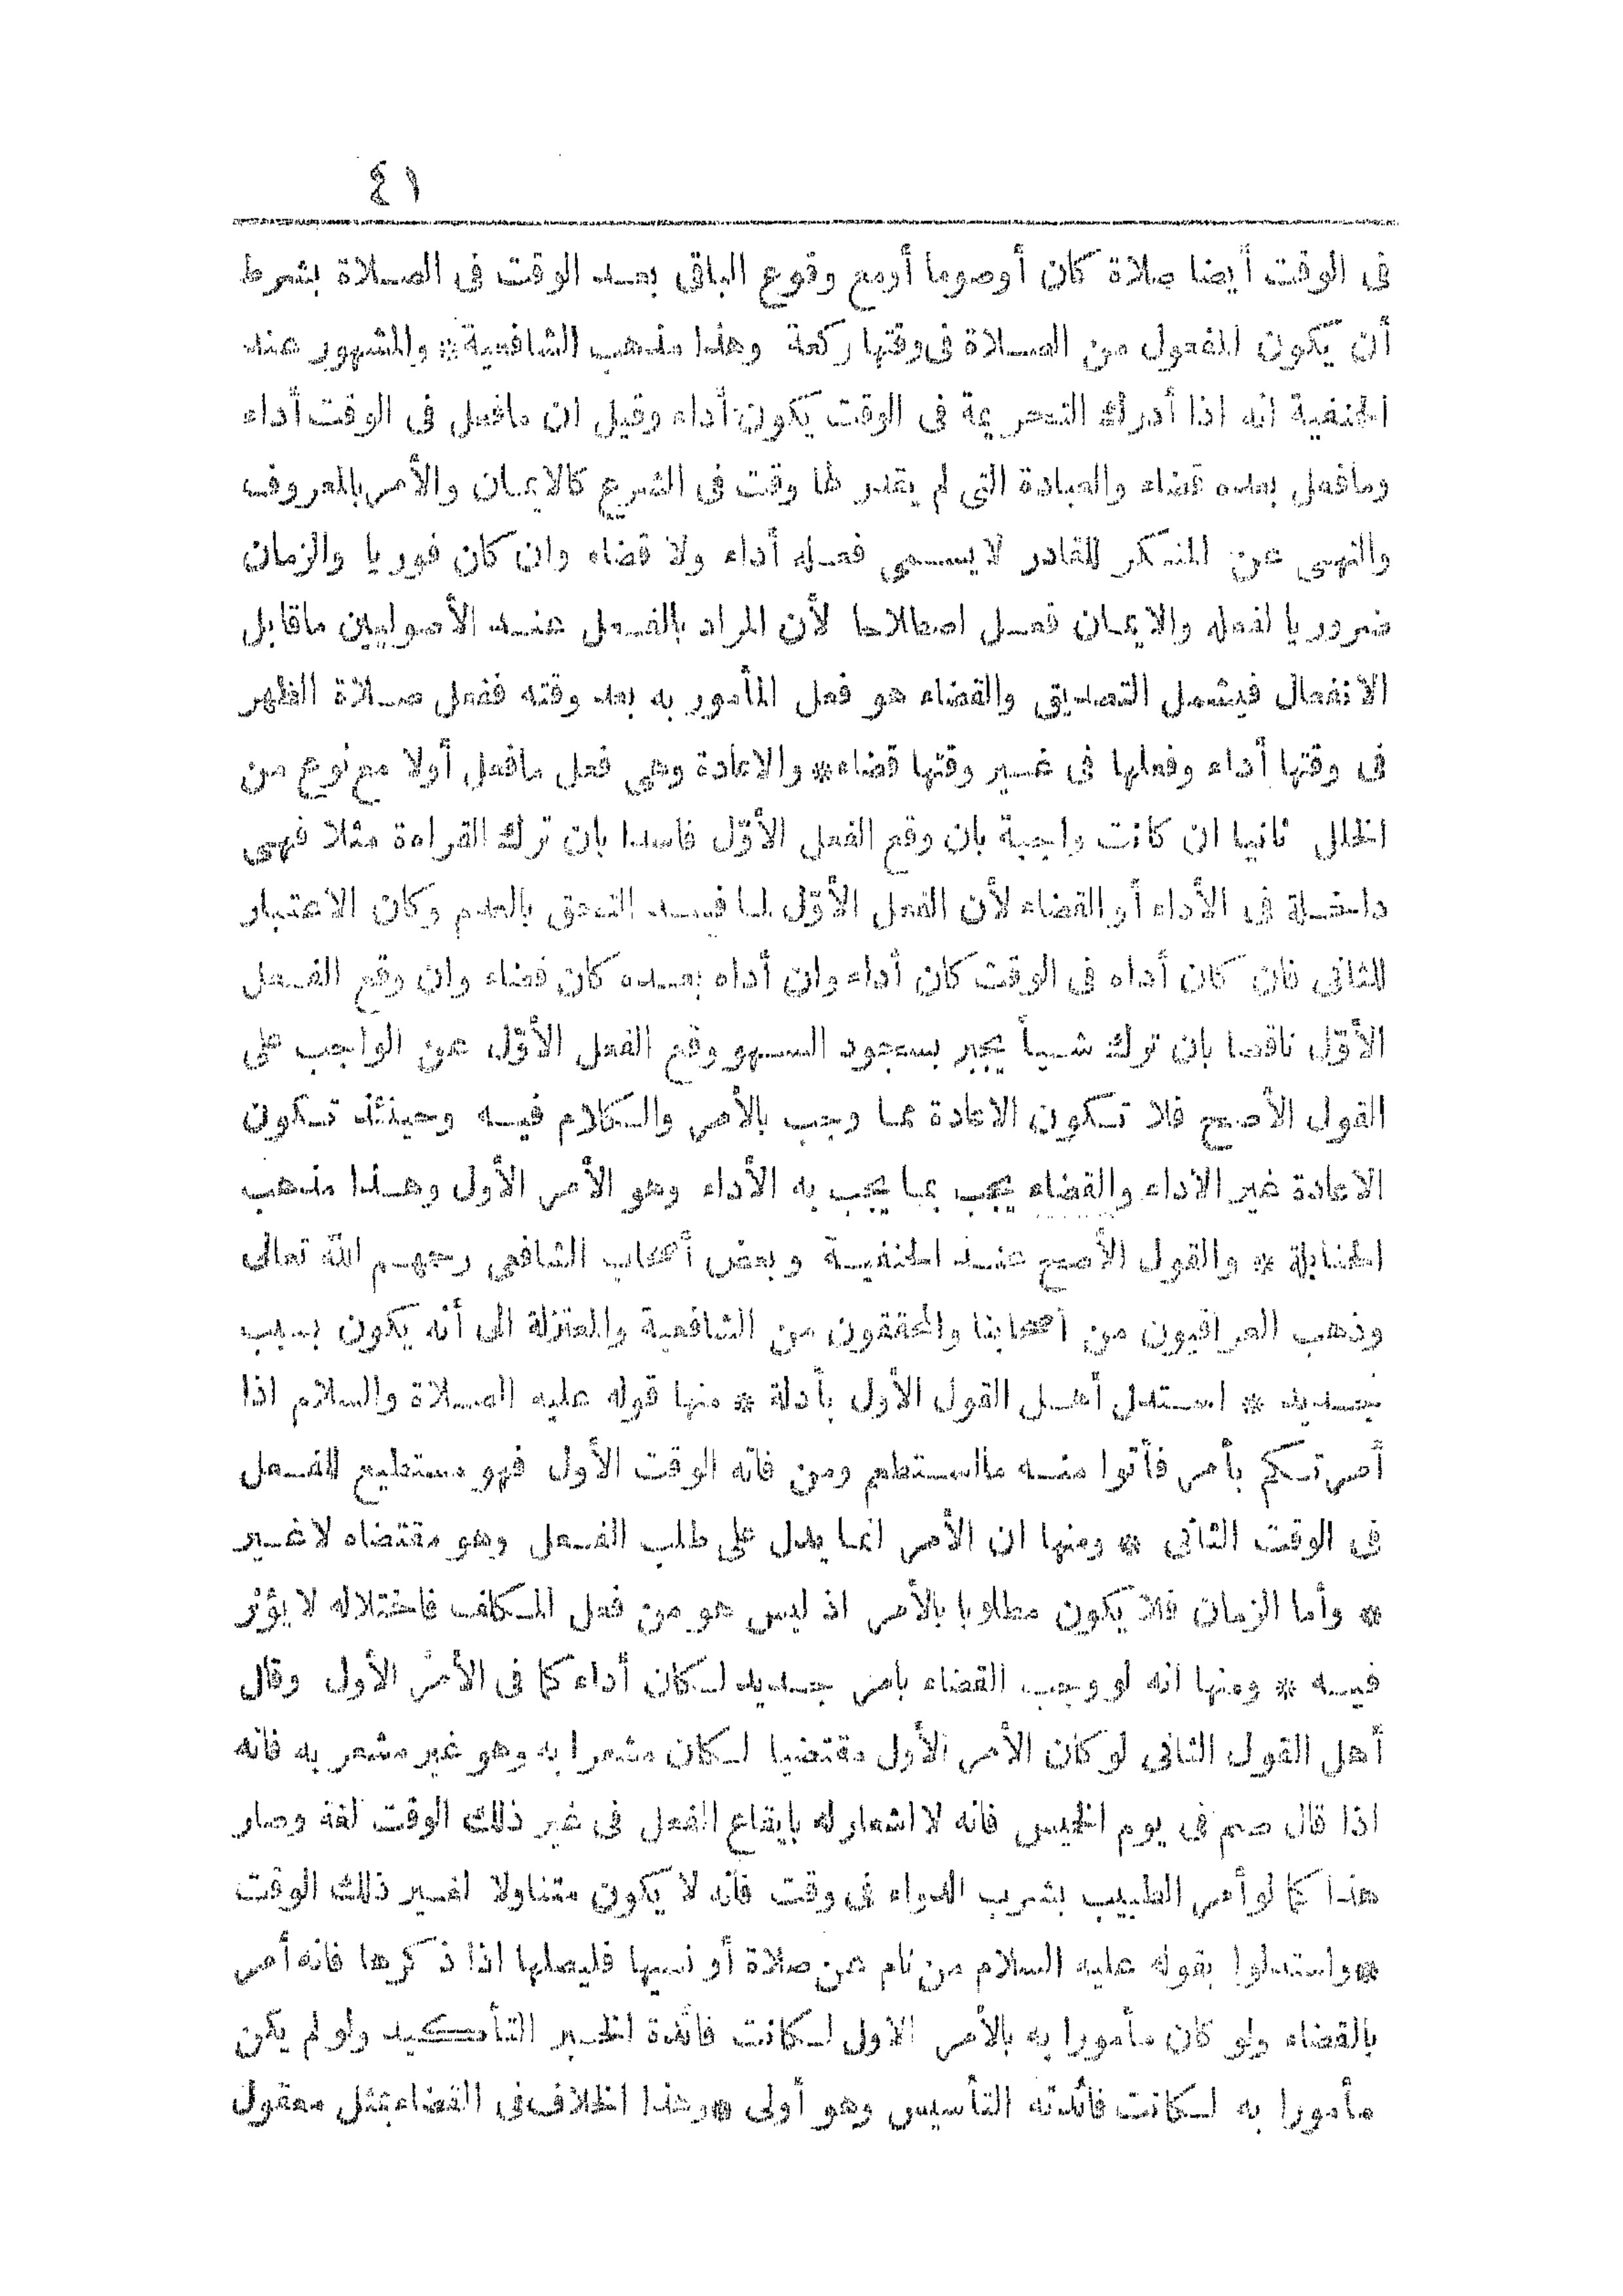 ٤١
فى الوقت أيضا صلاة كان أوصوما أومع وقوع الباقى بعد الوقت فى الصلاة بشرط
أن يكون المفعول من الصلاة فى وقتها ركعة وهذا مذهب الشافعية * والمشهور عند
الحنفية انه اذا أدرك التحريمة فى الوقت يكون أداء وقيل ان مافعل فى الوقت أداء
ومافعل بعده قضاء والعبادة التى لم يقدر لها وقت فى الشرع كالايمان والأمر بالمعروف
والنهى عن المنكر للقادر لا يسمى فعله أداء ولا قضاء وان كان فوريا والزمان
ضروريا لفعله والايمان فعل اصطلاحا لأن المراد بالفعل عند الأصوليين ماقابل
الانفعال فيشمل التصديق والقضاء هو فعل المأمور به بعد وقته ففعل صلاة الظهر
فى وقتها أداء وفعلها فى غير وقتها قضاء * والاعادة وهى فعل مافعل أولا مع نوع من
الخلل ثانيا ان كانت واجبة بان وقع الفعل الأوّل فاسدا بان ترك القراءة مثلا فهى
داخلة فى الأداء أو القضاء لأن الفعل الأوّل لما فسد التحق بالعدم وكان الاعتبار
للثانى فان كان أداه فى الوقت كان أداء وان أداه بعده كان قضاء وان وقع الفعل
الأوّل ناقصا بان ترك شيأ يجبر بسجود السهو وقع الفعل الأوّل عن الواجب على
القول الأصح فلا تكون الاعادة مما وجب بالأمر والكلام فيه وحينئذ تكون
الاعادة غير الاداء والقضاء يجب بما يجب به الأداء وهو الأمر الأول وهذا مذهب
الحنابلة * والقول الأصح عند الحنفية وبعض أصحاب الشافعى رحمهم الله تعالى
وذهب العراقيون من أصحابنا والمحققون من الشافعية والمعتزلة الى أنه يكون بسبب
جديد * استدل أهل القول الأول بأدلة * منها قوله عليه الصلاة والسلام اذا
أمرتكم بأمر فأتوا منه مااستطعم ومن فاته الوقت الأول فهو مستطيع للفعل
فى الوقت الثانى * ومنها ان الأمر انما يدل على طلب الفعل وهو مقتضاه لا غير
* وأما الزمان فلا يكون مطلوبا بالأمر اذ ليس هو من فعل المكلف فاختلاله لا يؤثر
فيه * ومنها انه لو وجب القضاء بامر جديد لكان أداء كما فى الأمر الأول وقال
أهل القول الثانى لو كان الأمر الأول مقتضيا لكان مشعرا به وهو غير مشعر به فانه
اذا قال صم فى يوم الخميس فانه لا اشعار له بايقاع الفعل فى غير ذلك الوقت لغة وصار
هذا كما لو أمر الطبيب بشرب الدواء فى وقت فانه لا يكون متناولا لغير ذلك الوقت
* واستدلوا بقوله عليه السلام من نام عن صلاة أو نسيها فليصلها اذا ذكرها فانه أمر
بالقضاء ولو كان مأمورا به بالأمر الاول لكانت فائدة الخبر التأكيد ولو لم يكن
مأمورا به لكانت فائدته التأسيس وهو أولى * وهذا الخلاف فى القضاء بمثل معقول